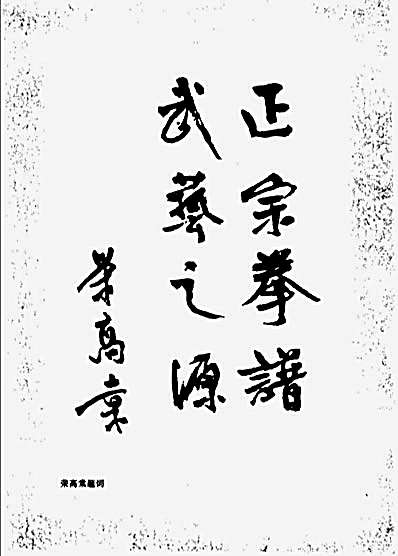 正宗拳譜
武藝之源
荣高棠
荣高棠题词